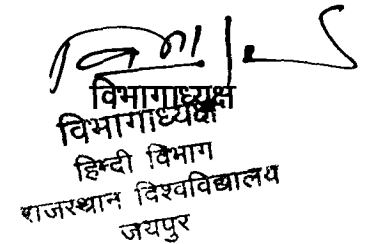 विभागाध्यक्ष
विभागाध्यक्ष
हिन्दी विभाग
राजस्थान विश्वविद्यालय
जयपुर